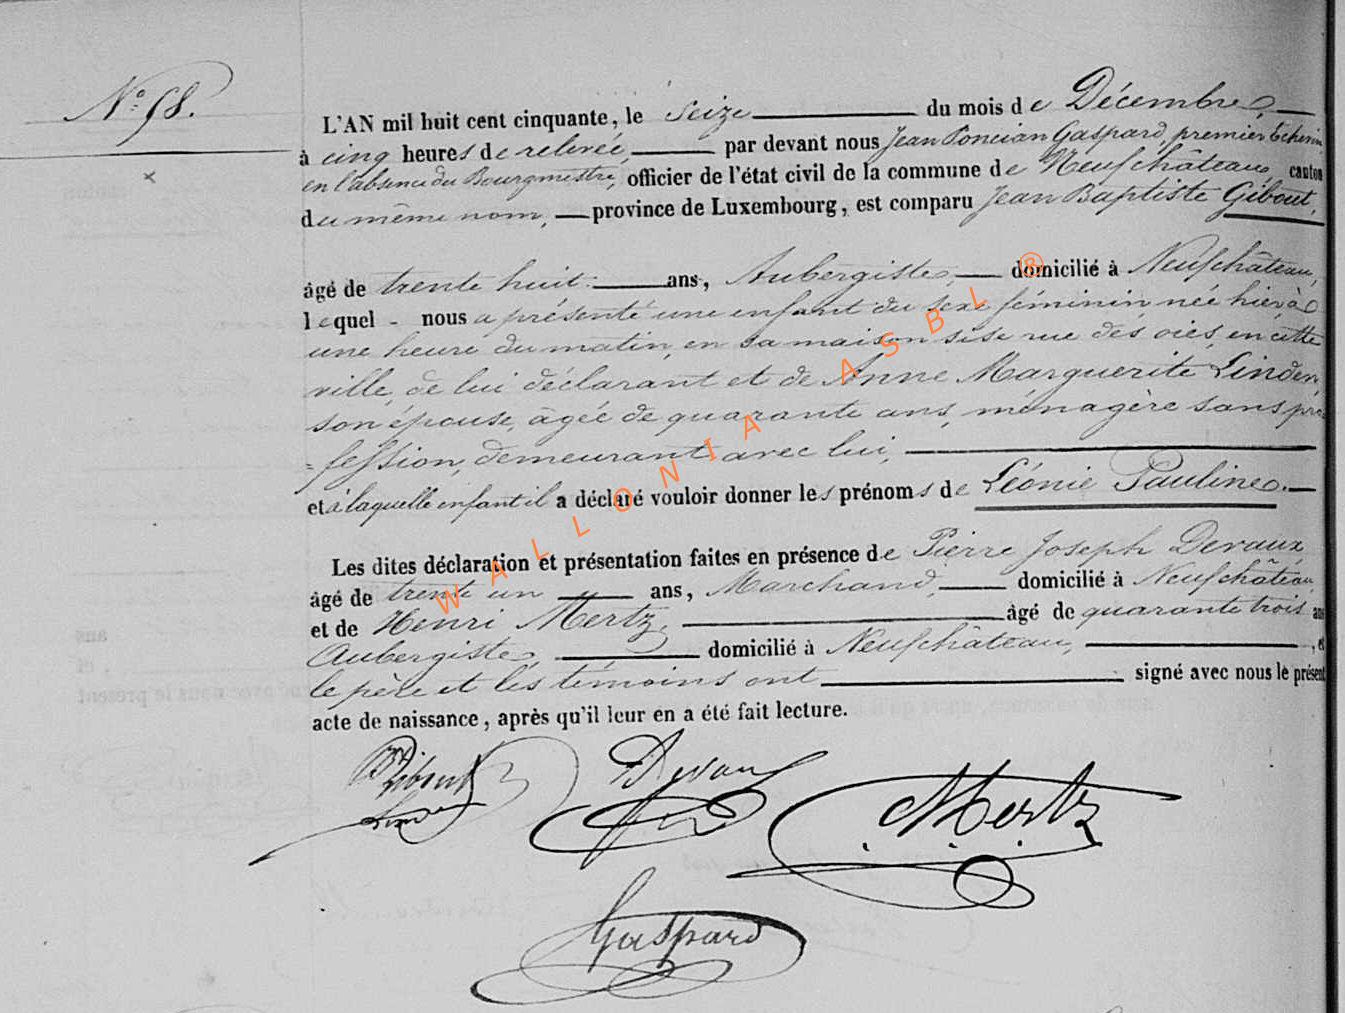 N° 98.
L'AN mil huit cent cinquante, le seize du mois de Décembre,
à cinq heures de relevée, par devant nous Jean Poncian Gaspard, premier Echevin
en l'absence du Bourgmestre, officier de l'état civil de la commune de Neufchâteau, canton
du même nom, province de Luxembourg, est comparu Jean Baptiste Gibout,
âgé de trente huit ans, Aubergiste, domicilié à Neufchâteau,
lequel nous a présenté une enfant du sexe féminin, née hier, à
une heure du matin, en sa maison sise rue des oies, en cette
ville, de lui déclarant et de Anne Marguerite Linden
son épouse, âgée de quarante ans, ménagère sans pro
= fession, demeurant avec lui,
et à laquelle enfant il a déclaré vouloir donner les prénoms de Léonie Pauline.
Les dites déclaration et présentation faites en présence de Pierre Joseph Devaux
âgé de trente un ans, Marchand, domicilié à Neufchâteau,
et de Henri Mertz, âgé de quarante trois ans
Aubergiste, domicilié à Neufchâteau, , et
le père et les témoins ont signé avec nous le présent
acte de naissance, après qu'il leur en a été fait lecture.
Gibout Devaux Mertz
Gaspard
WALLONIA ASBL ®